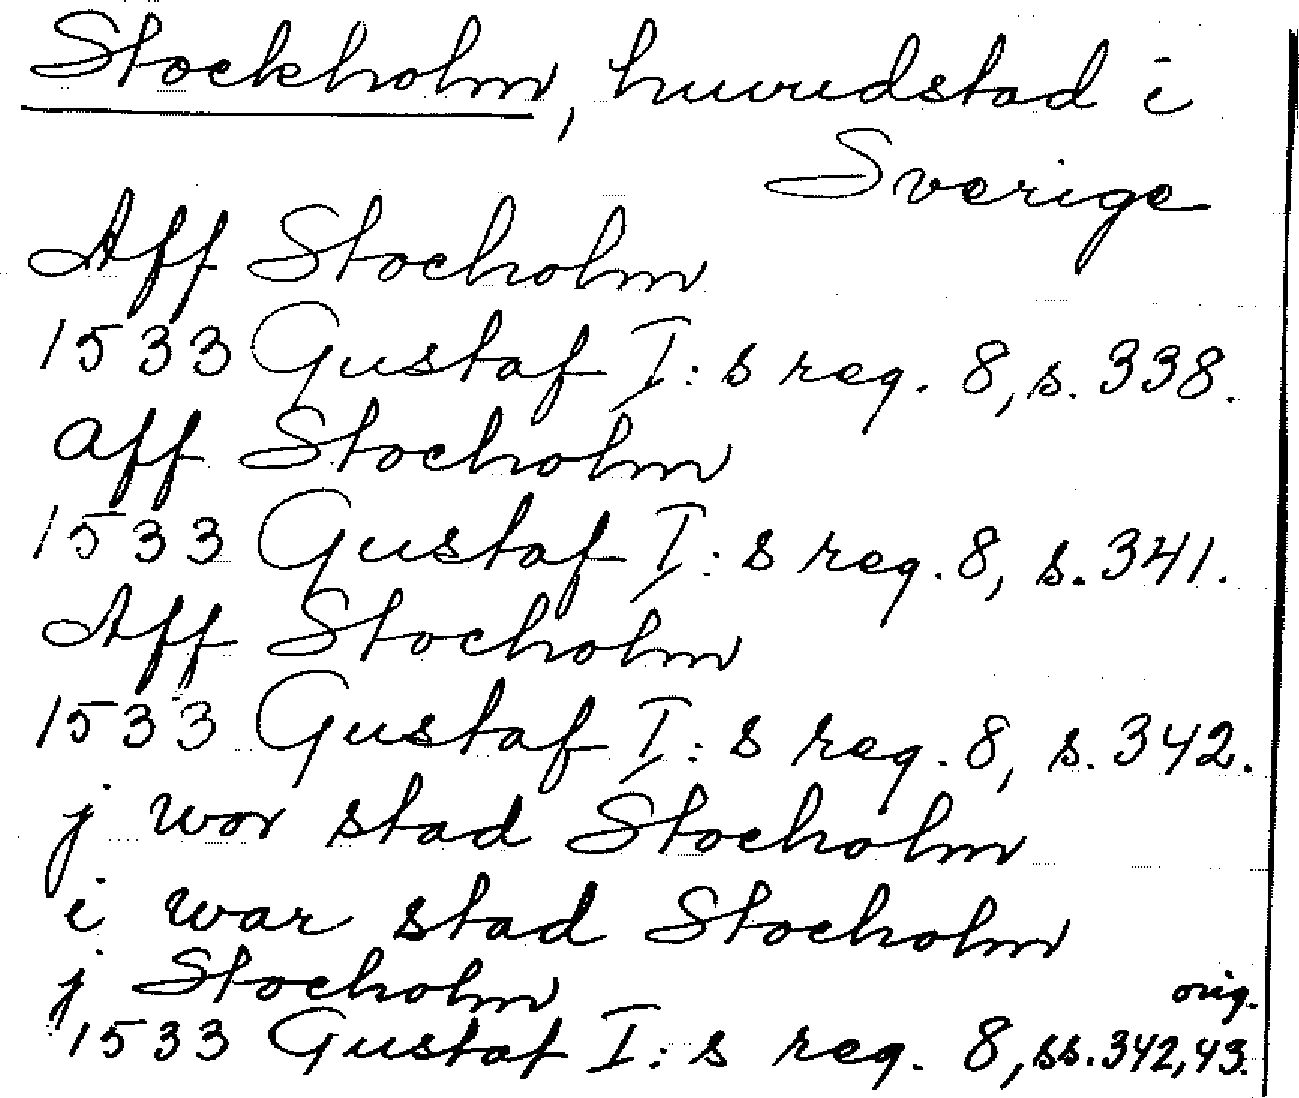 Stockholm, huvudstad i
Sverige
Aff Stocholm
1533 Gustaf I:s reg. 8, s. 338.
aff Stocholm
1533 Gustaf I:s reg. 8, s. 341.
Aff Stocholm
1533 Gustaf I:s reg. 8, s. 342.
j wor stad Stocholm
i war stad Stocholm
j Stocholm orig.
1533 Gustaf I:s reg. 8, ss. 342, 43.